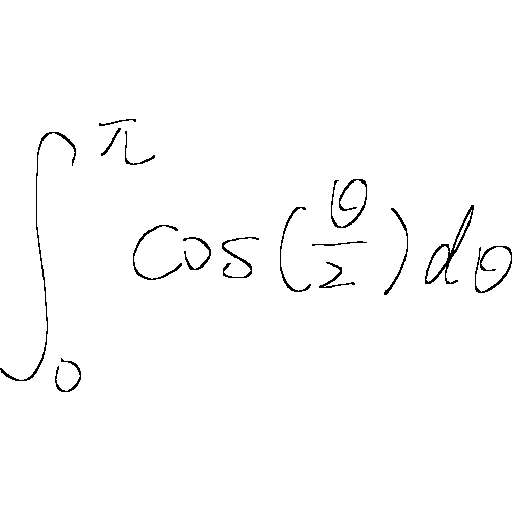 \int_0^\pi \cos(\frac{\theta}{2}) d\theta